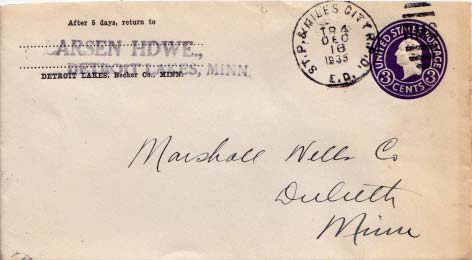 After 5 days, return to
LARSEN HDWE.,
DETROIT LAKES, MINN.
DETROIT LAKES, Becker Co., MINN.
ST. P. & MILES CITY R.P.O.
TR 4
DEC
18
1935
E.D.
UNITED STATES POSTAGE
3 CENTS 3
Marshall Wells Co
Duluth
Minn